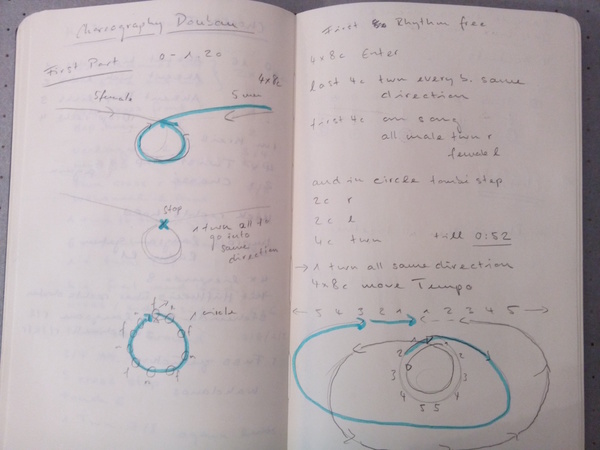 Choreography Doubau
First Part 0 - 1.20
4x8c
5 female 5 men
stop
1 turn all
go into
same
direction
1 circle
First Rhythm free
4x8c Enter
last 4c turn every b. same
direction
first 4c on song
all male turn r
female l
and in circle tombi step
2c r
2c l
4c turn till 0:52
→ 1 turn all same direction
4x8c move Tempo
← 5 4 3 2 1 1 2 3 4 5 →
1 1
2 2
3 3
4 4
5 5